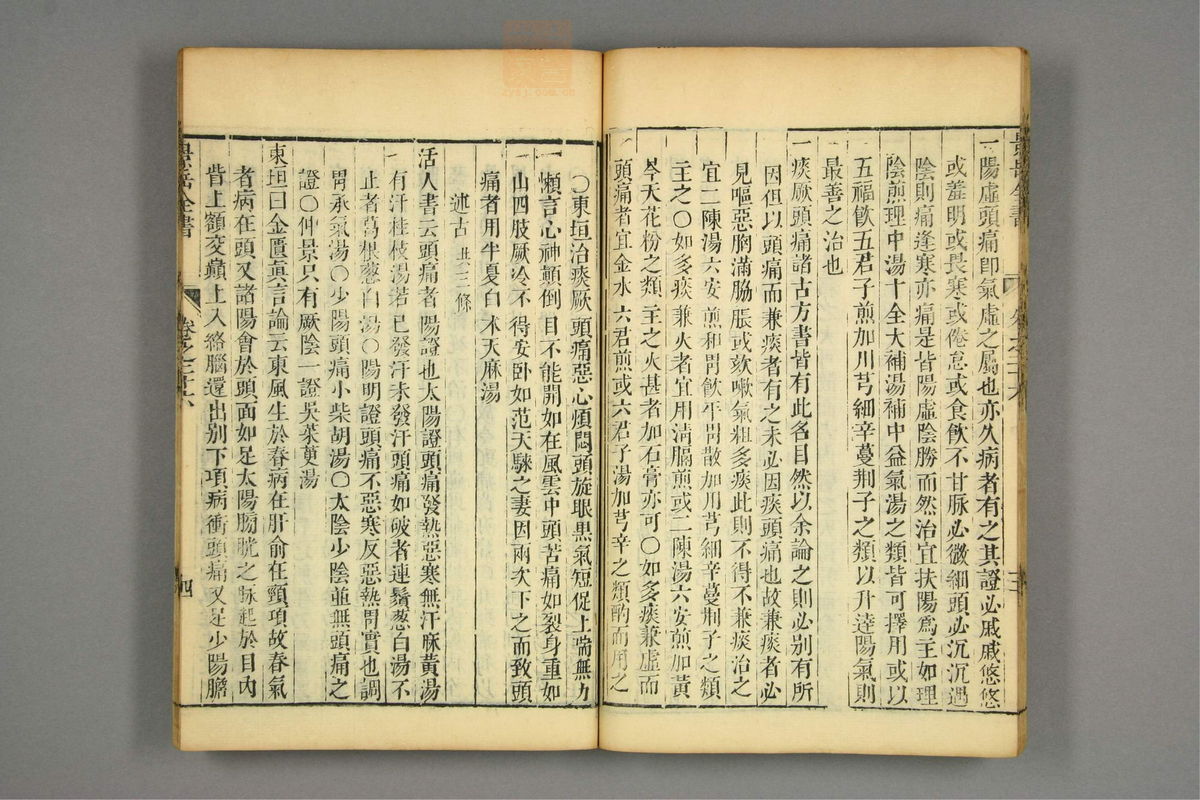 一陽虛頭痛卽氣虛之屬也亦久病者有之其證必戚戚悠悠
或羞明或畏寒或倦怠或食飲不甘脉必微細頭必沉沉遇
陰則痛逢寒亦痛是皆陽虛陰勝而然治宜扶陽爲主如理
陰煎理中湯十全大補湯補中益氣湯之類皆可擇用或以
五福飲五君子煎加川芎細辛蔓荆子之類以升達陽氣則
最善之治也
一痰厥頭痛諸古方書皆有此名目然以余論之則必别有所
因但以頭痛而兼痰者有之未必因痰頭痛也故兼痰者必
見嘔惡胸滿脇脹或欬嗽氣粗多痰此則不得不兼痰治之
宜二陳湯六安煎和胃飲平胃散加川芎細辛蔓荆子之類
主之〇如多痰兼火者宜用清膈煎或二陳湯六安煎加黃
芩天花粉之類主之火甚者加石膏亦可〇如多痰兼虛而
頭痛者宜金水六君煎或六君子湯加芎辛之類酌而用之
〇東垣治痰厥頭痛惡心煩悶頭旋眼黑氣短促上喘無力
懶言心神顛倒目不能開如在風雲中頭苦痛如裂身重如
山四肢厥冷不得安卧如范天騋之妻因兩次下之而致頭
痛者用半夏白术天麻湯
述古 共三條
活人書云頭痛者陽證也太陽證頭痛發熱惡寒無汗麻黃湯
有汗桂枝湯若已發汗未發汗頭痛如破者連鬚葱白湯不
止者葛根葱白湯〇陽明證頭痛不惡寒反惡熱胃實也調
胃承氣湯〇少陽頭痛小柴胡湯〇太陰少陰並無頭痛之
證〇仲景只有厥陰一證吳茱萸湯
東垣曰金匱眞言論云東風生於春病在肝俞在頸項故春氣
者病在頭又諸陽會於頭面如足太陽膀胱之脉起於目內
眥上額交巔上入絡腦還出别下項病衝頭痛又足少陽膽
景岳全書
卷之二十六
四